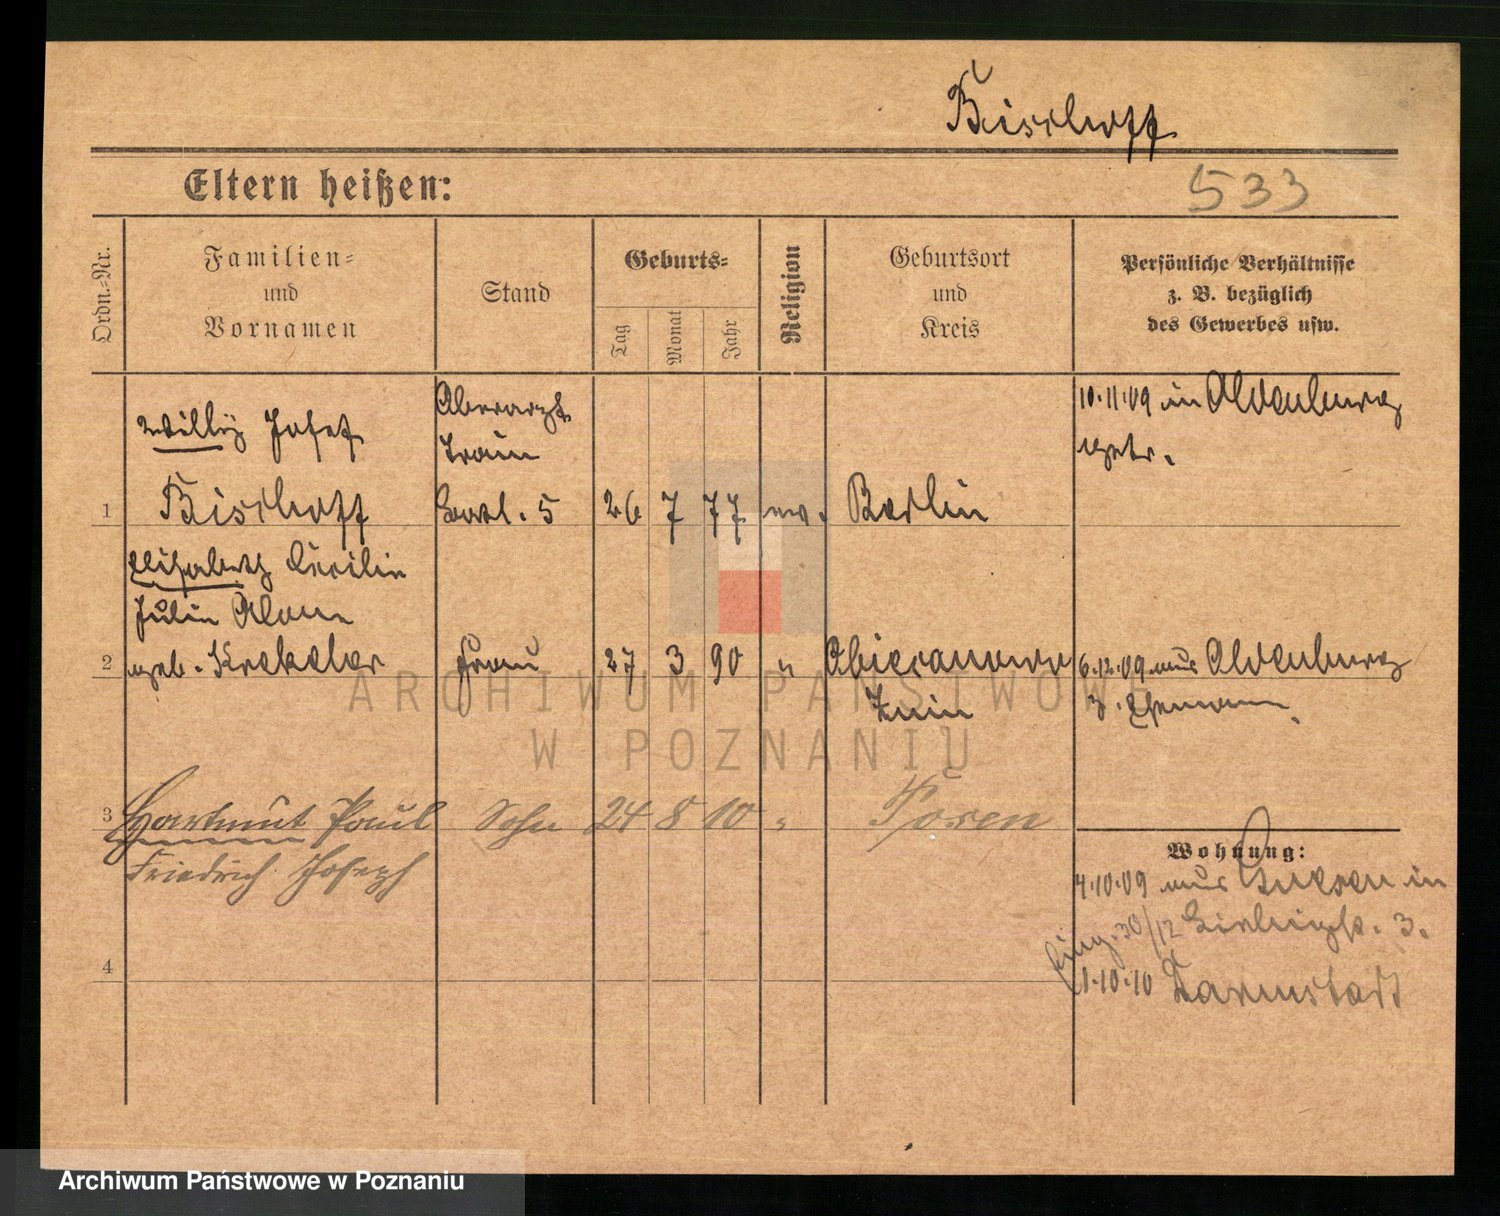 Bischoff
Eltern heißen:
533
Ordn.-Nr.
Familien-
und
Vornamen
Stand
Geburts-
Tag
Monat
Jahr
Religion
Geburtsort
und
Kreis
Persönliche Verhältnisse
z. B. bezüglich
des Gewerbes usw.
Willy Josef
Oberarzt
Train
10.11.09 in Oldenburg
getr.
1 Bischoff Batl. 5 26 7 77 ev. Berlin
Elisabeth Cäcilie
Julie Alma
2 geb. Krekeler Frau 27 3 90 " 6.12.09 aus Oldenburg
Znin
z. Ehemann.
3 Hartmut Paul Sohn 24 8 10 " Posen
Friedrich Joseph
Wohnung:
4.10.09 aus Gnesen in
30/12 3.
4
1.10.10 Darmstadt
ARCHIWUM PAŃSTWOWE
W POZNANIU
Archiwum Państwowe w Poznaniu